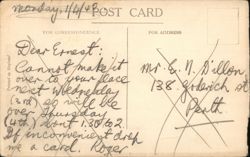 Monday, 1/4/48
POST CARD
FOR CORRESPONDENCE
FOR ADDRESS
Dear Ernest:
Cannot make it
over to your place
next Wednesday
(3rd) so will be
over Thursday
(4th) abt 1.30 to 2.
If inconvenient drop
me a card. Roger
Mr. E. N. Dillon
138 Goderich St
Perth